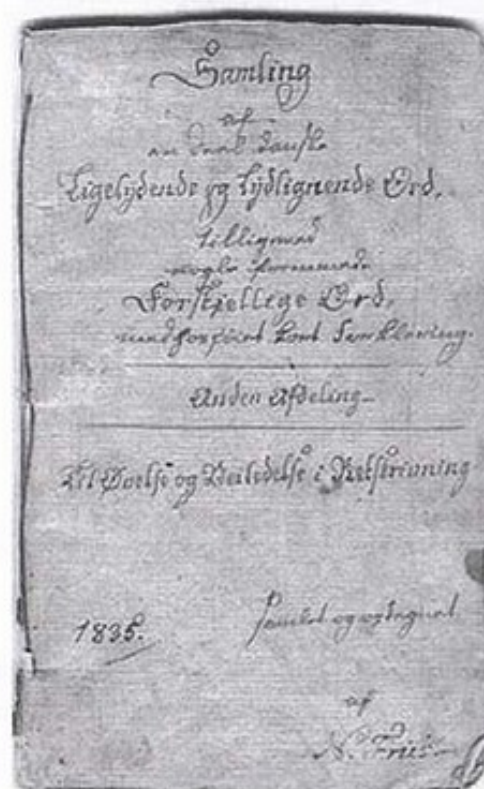 Samling
af
en Deel danske
Ligelydende og Lydlignende Ord,
tilligemed
nogle fremmede
Forskjellege Ord,
med forføiet kort Forklaring.
Anden Afdeling
Til Øvelse og Veiledelse i Retskrivning
1835.
Samlet og optegnet
af
N. Friis